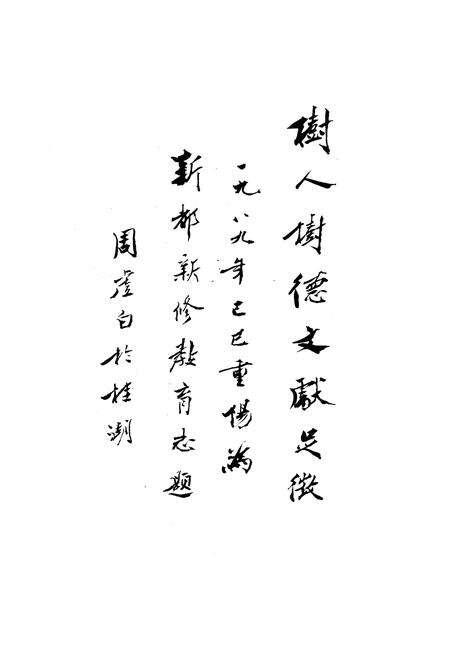 樹人樹德文獻足徵
一九八九年己巳重陽為
新都新修教育志題
周虚白於桂湖